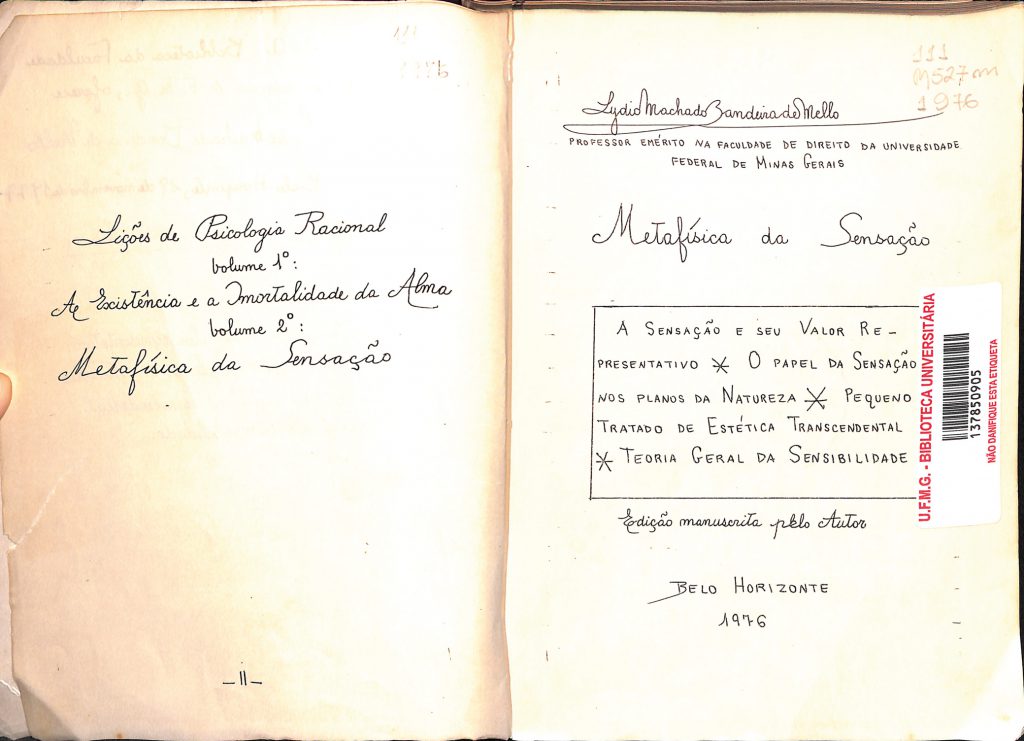 Lições de Psicologia Racional
volume 1º:
A Existência e a Imortalidade da Alma
volume 2º:
Metafísica da Sensação
_II_
111
M527m
1976
Lydio Machado Bandeira de Mello
PROFESSOR EMÉRITO NA FACULDADE DE DIREITO DA UNIVERSIDADE
FEDERAL DE MINAS GERAIS
Metafísica da Sensação
A SENSAÇÃO E SEU VALOR RE-
PRESENTATIVO * O PAPEL DA SENSAÇÃO
NOS PLANOS DA NATUREZA * PEQUENO
TRATADO DE ESTÉTICA TRANSCENDENTAL
* TEORIA GERAL DA SENSIBILIDADE
Edição manuscrita pelo Autor
BELO HORIZONTE
1976
U.F.M.G. - BIBLIOTECA UNIVERSITÁRIA
137850905
NÃO DANIFIQUE ESTA ETIQUETA